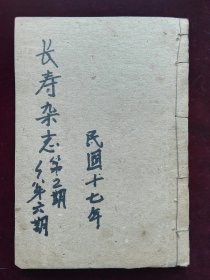 民国十七年
长寿杂志第二期
年六期